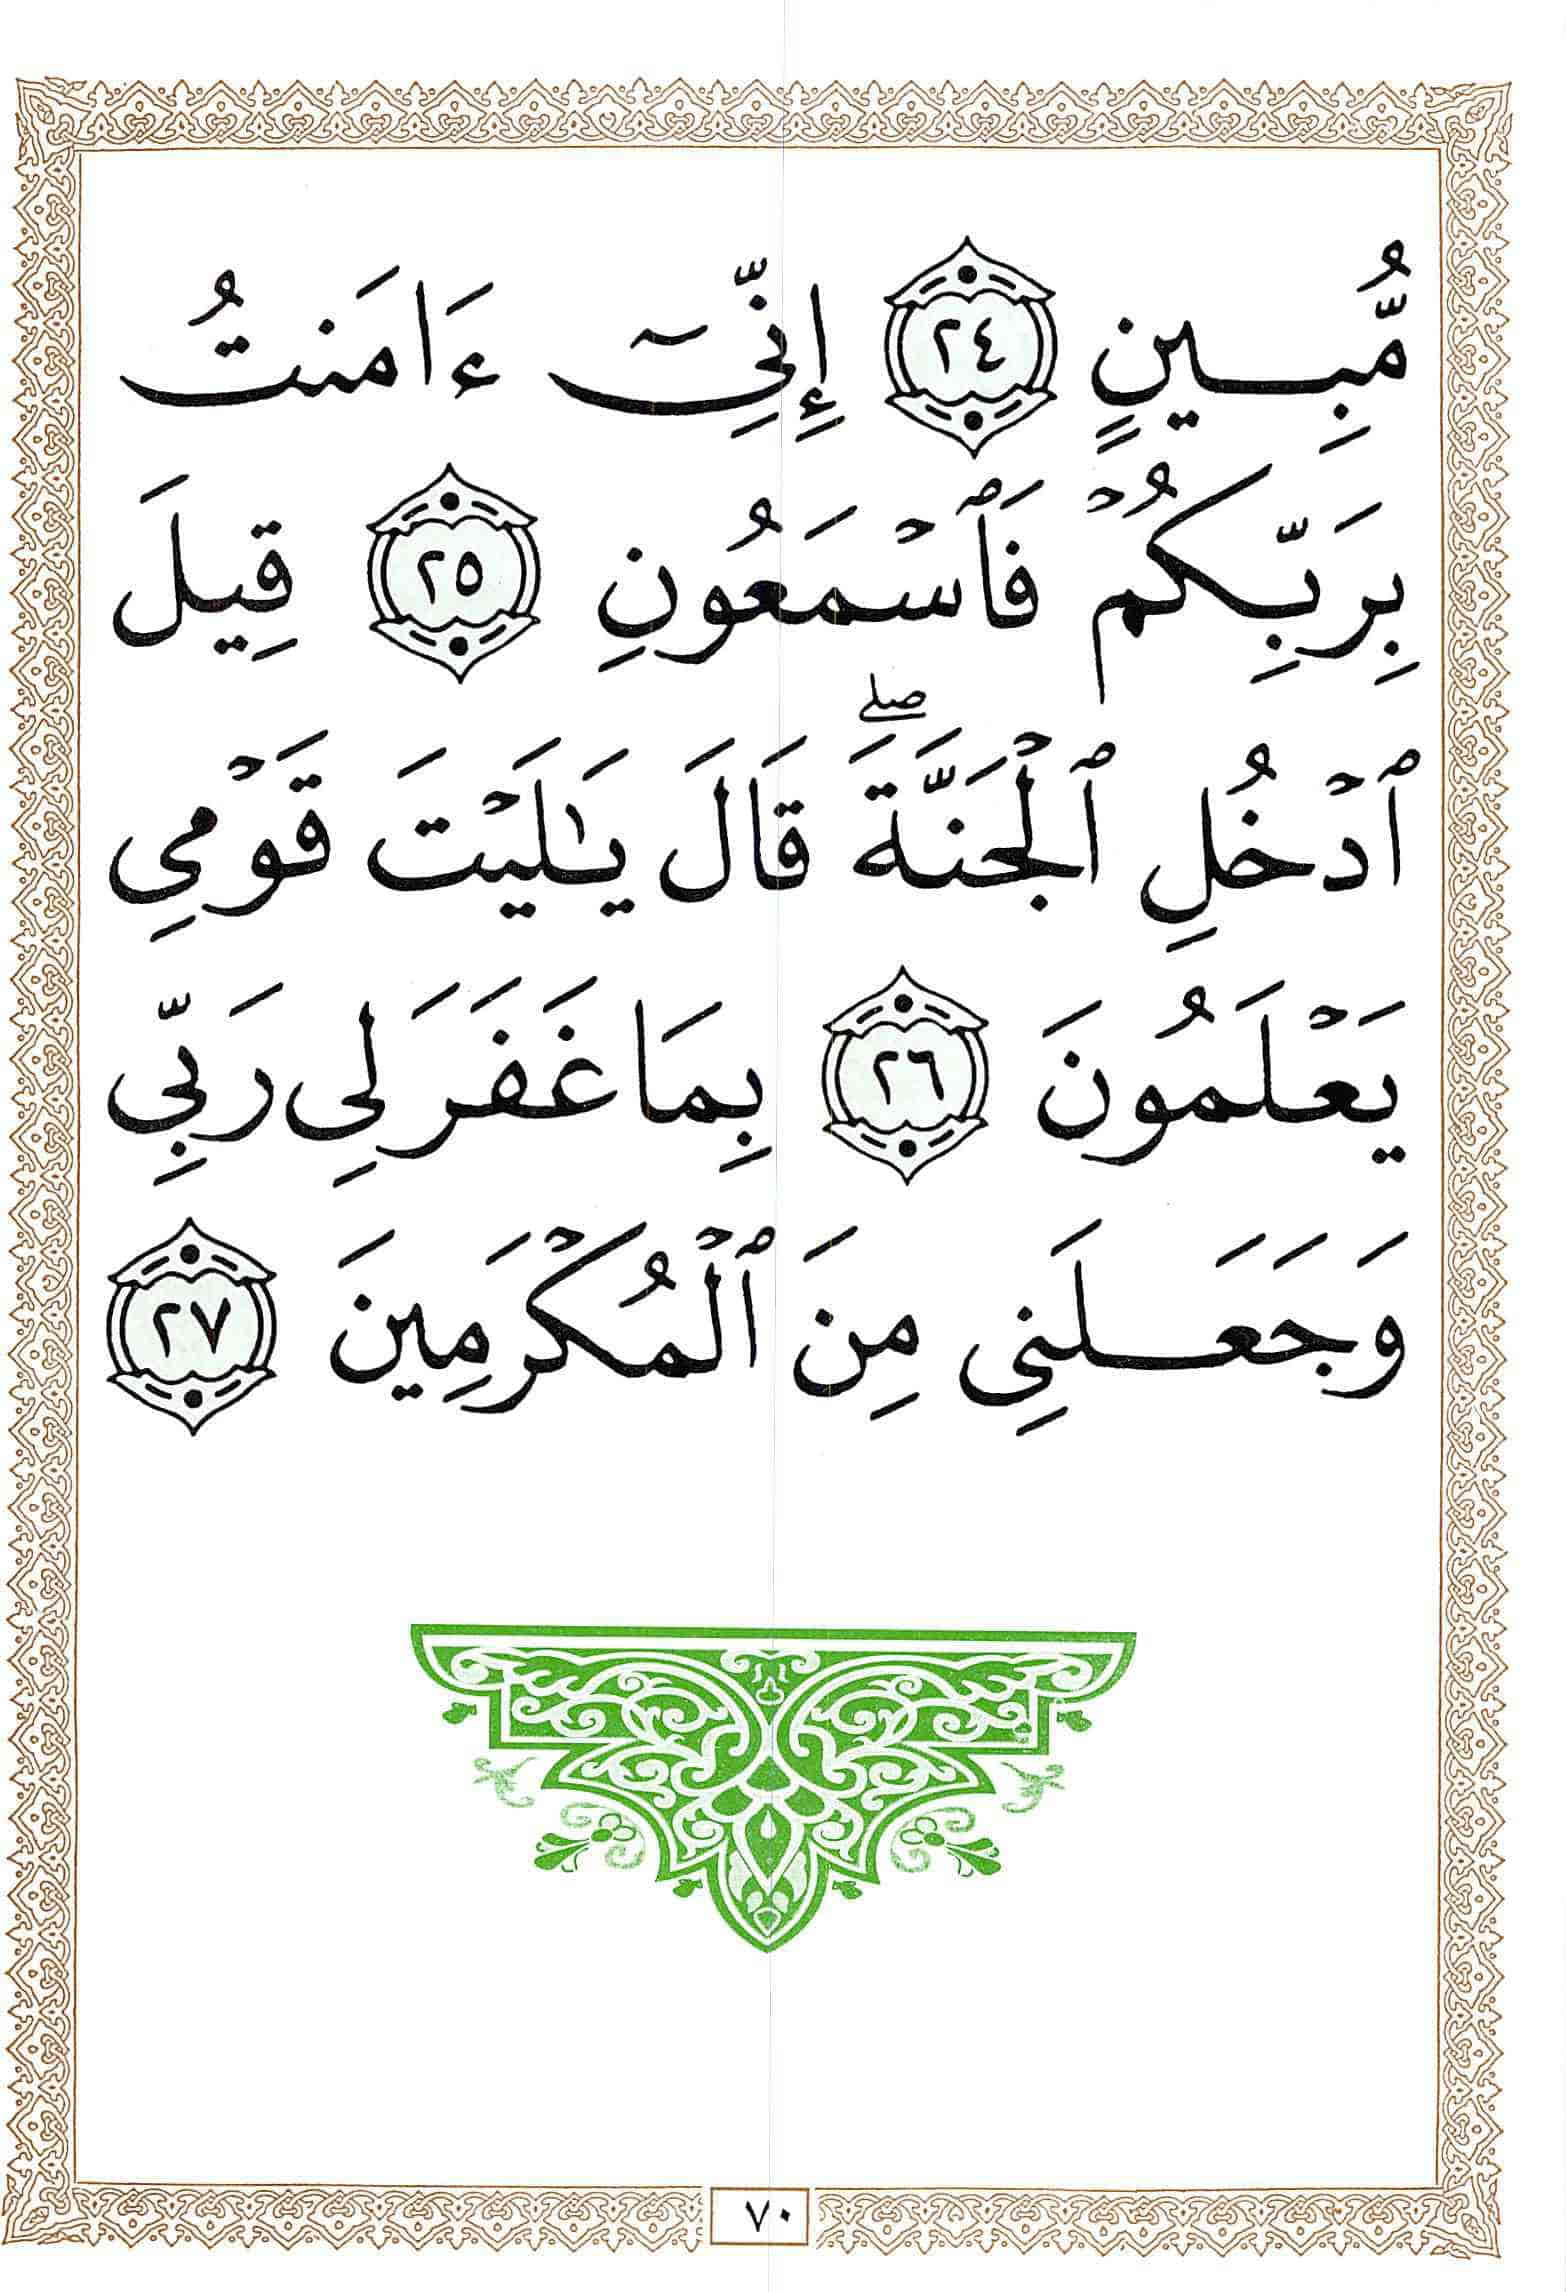 مُّبِينٍ ٢٤ إِنِّىٓ ءَامَنتُ
بِرَبِّكُمْ فَٱسْمَعُونِ ٢٥ قِيلَ
ٱدْخُلِ ٱلْجَنَّةَ ۖ قَالَ يَٰلَيْتَ قَوْمِى
يَعْلَمُونَ ٢٦ بِمَا غَفَرَ لِى رَبِّى
وَجَعَلَنِى مِنَ ٱلْمُكْرَمِينَ ٢٧
٧٠